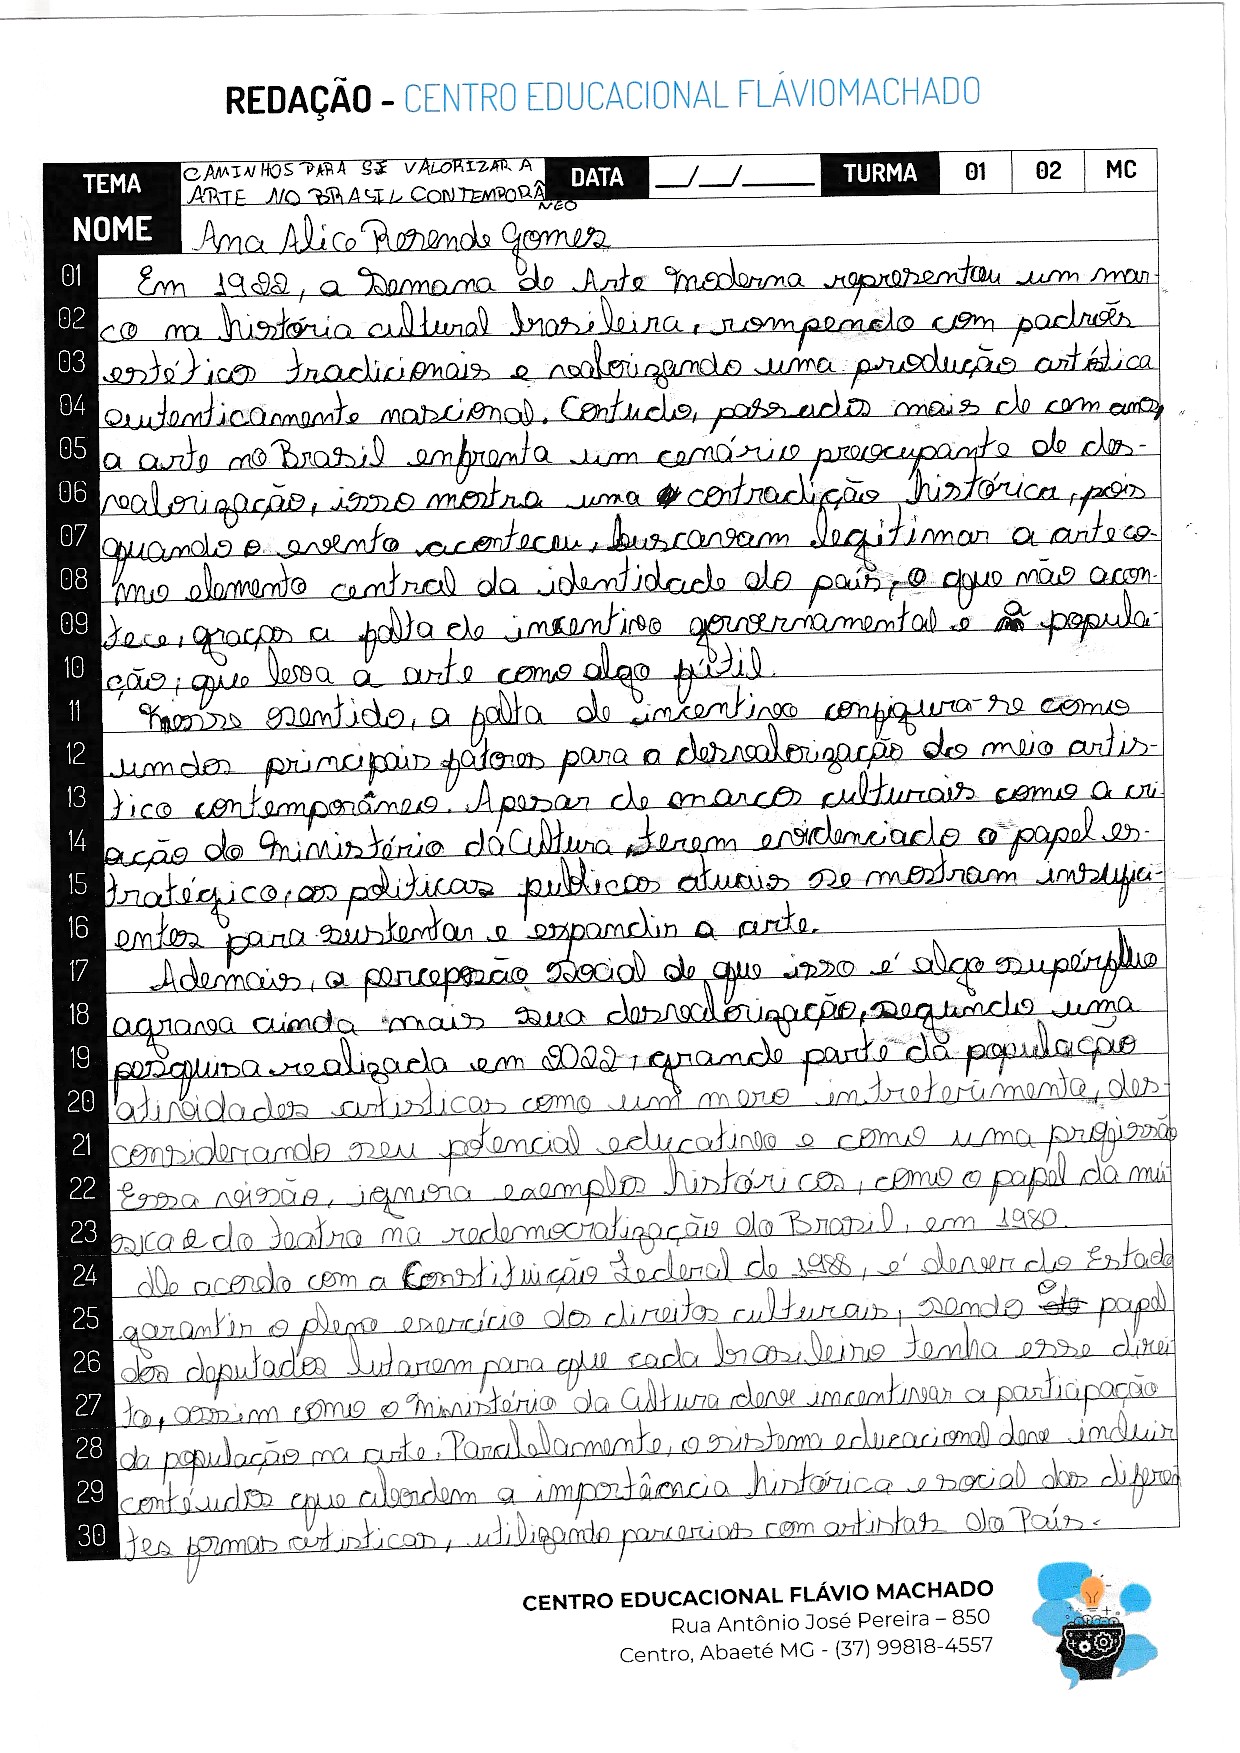 REDAÇÃO - CENTRO EDUCACIONAL FLÁVIOMACHADO
TEMA CAMINHOS PARA SE VALORIZAR A DATA __/__/____ TURMA 01 02 MC
ARTE NO BRASIL CONTEMPORÂ
NEO
NOME Ana Alice Rezende Gomes
01 Em 1922, a Semana de Arte Moderna representou um mar-
02 co na história cultural brasileira, rompendo com padrões
03 estético tradicionais e valorizando uma produção artística
04 autenticamente nascional. Contudo, passados mais de cem anos,
05 a arte no Brasil enfrenta um cenário preocupante de des-
06 valorização, isso mostra uma contradição histórica, pois
07 quando o evento aconteceu, buscavam legitimar a arte co-
08 mo elemento central da identidade do país, o que não acon-
09 tece, graças a falta de incentivo governamental e a popula-
10 ção, que leva a arte como algo fútil.
11 Nesse sentido, a falta de incentivo configura-se como
12 um dos principais fatores para a desvalorização do meio artis-
13 tico contemporâneo. Apesar de marcos culturais como a cri
14 ação do Ministério da Cultura terem evidenciado o papel es-
15 tratégico, as politicas publicas atuais se mostram insufici-
16 entes para sustentar e expandir a arte.
17 Ademais, a percepsão social de que isso é algo supérfluo
18 agrava ainda mais sua desvalorização, segundo uma
19 pesquisa realizada em 2022, grande parte da população
20 atividades artisticas como um mero intreterimento, des-
21 considerando seu potencial educativo e como uma profissão
22 Essa visão, ignora exemplos históricos, como o papel da mú
23 sica e do teatro na redemocratização do Brasil, em 1980.
24 De acordo com a Constituição Federal de 1988, é dever do Estado
25 garantir o pleno exercício dos direitos culturais, sendo o papel
26 dos deputados lutarem para que cada brasileiro tenha esse direi
27 to, assim como o Ministério da Cultura deve incentivar a participação
28 da população na arte. Paralelamente, o sistema educacional deve incluir
29 contéudos que abordem a importância histórica e social das diferen
30 tes formas artisticas, utilizando parcerias com artistas do País.
CENTRO EDUCACIONAL FLÁVIO MACHADO
Rua Antônio José Pereira – 850
Centro, Abaeté MG - (37) 99818-4557